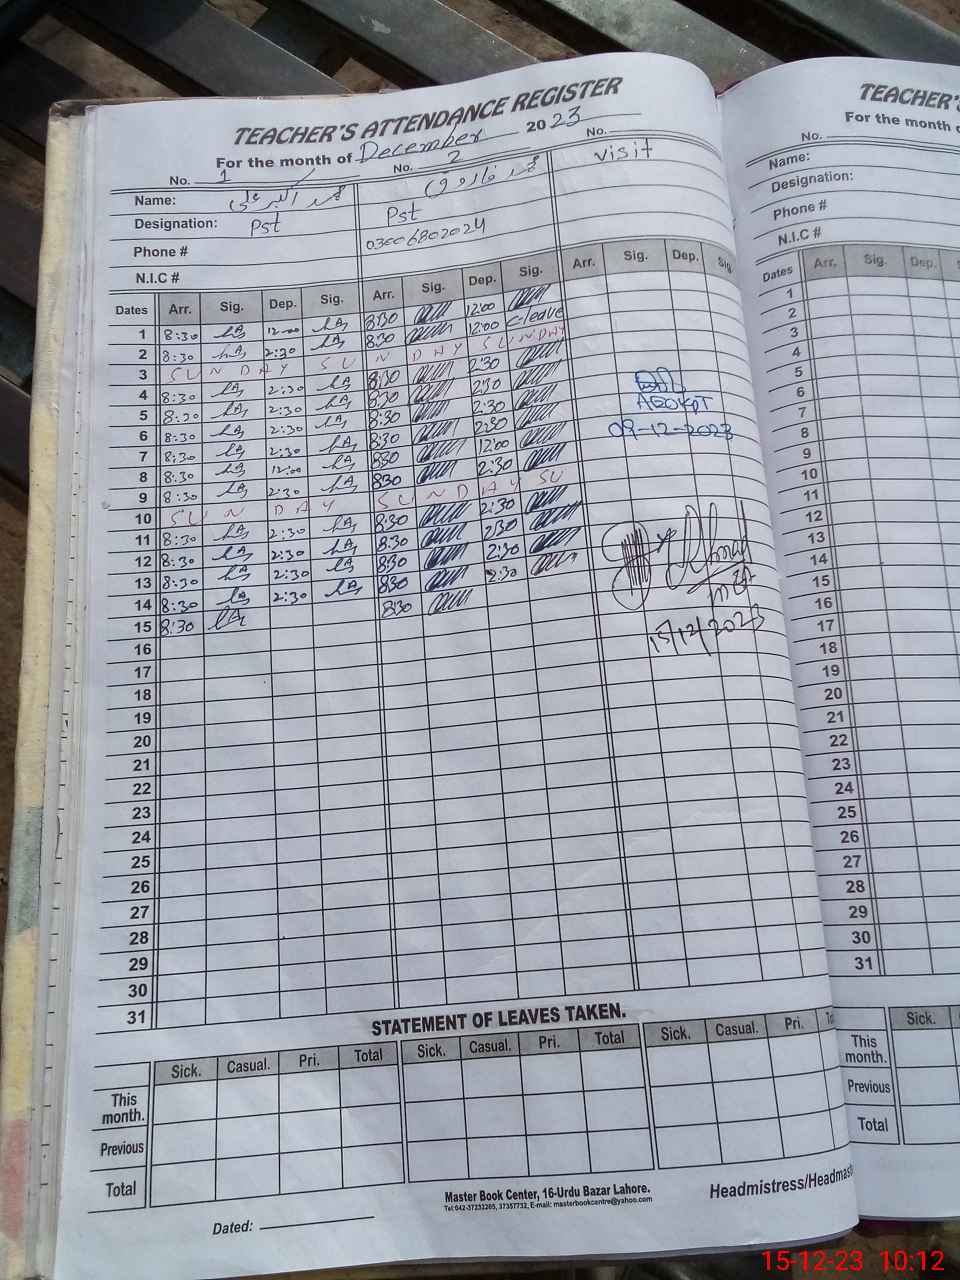 TEACHER'S ATTENDANCE REGISTER
For the month of December 2023
No. 1 No. 2 No.
Name: محمد اکبر علی محمد فاروق visit
Designation: Pst Pst
Phone # 03006802024
N.I.C #
Dates Arr. Sig. Dep. Sig. Arr. Sig. Dep. Sig. Arr. Sig. Dep. Sig
1 8:30 12:00 8:30 12:00
2 8:30 2:30 8:30 12:00 C-leave
3 SUNDAY SUNDAY SUNDAY
4 8:30 2:30 8:30 2:30
5 8:30 2:30 8:30 2:30
6 8:30 2:30 8:30 2:30
7 8:30 2:30 8:30 2:30
8 8:30 12:00 830 12:00
9 8:30 2:30 830 2:30
10 SUNDAY SUNDAY SU
11 8:30 2:30 8:30 2:30
12 8:30 2:30 8:30 230
13 8:30 2:30 830 2:30
14 8:30 2:30 830 2:30
15 8:30 8:30
16
17
18
19
20
21
22
23
24
25
26
27
28
29
30
31
09-12-2023
15/12/2023
STATEMENT OF LEAVES TAKEN.
Sick. Casual. Pri. Total Sick. Casual. Pri. Total Sick. Casual. Pri.
This month.
Previous
Total
Master Book Center, 16-Urdu Bazar Lahore.
Tel:042-37232265, 37357732, E-mail: masterbookcentre@yahoo.com
Headmistress/Headmas
Dated:
TEACHER'S
For the month o
No.
Name:
Designation:
Phone #
N.I.C #
Dates Arr. Sig. Dep.
1
2
3
4
5
6
7
8
9
10
11
12
13
14
15
16
17
18
19
20
21
22
23
24
25
26
27
28
29
30
31
Sick.
This month.
Previous
Total
15-12-23 10:12